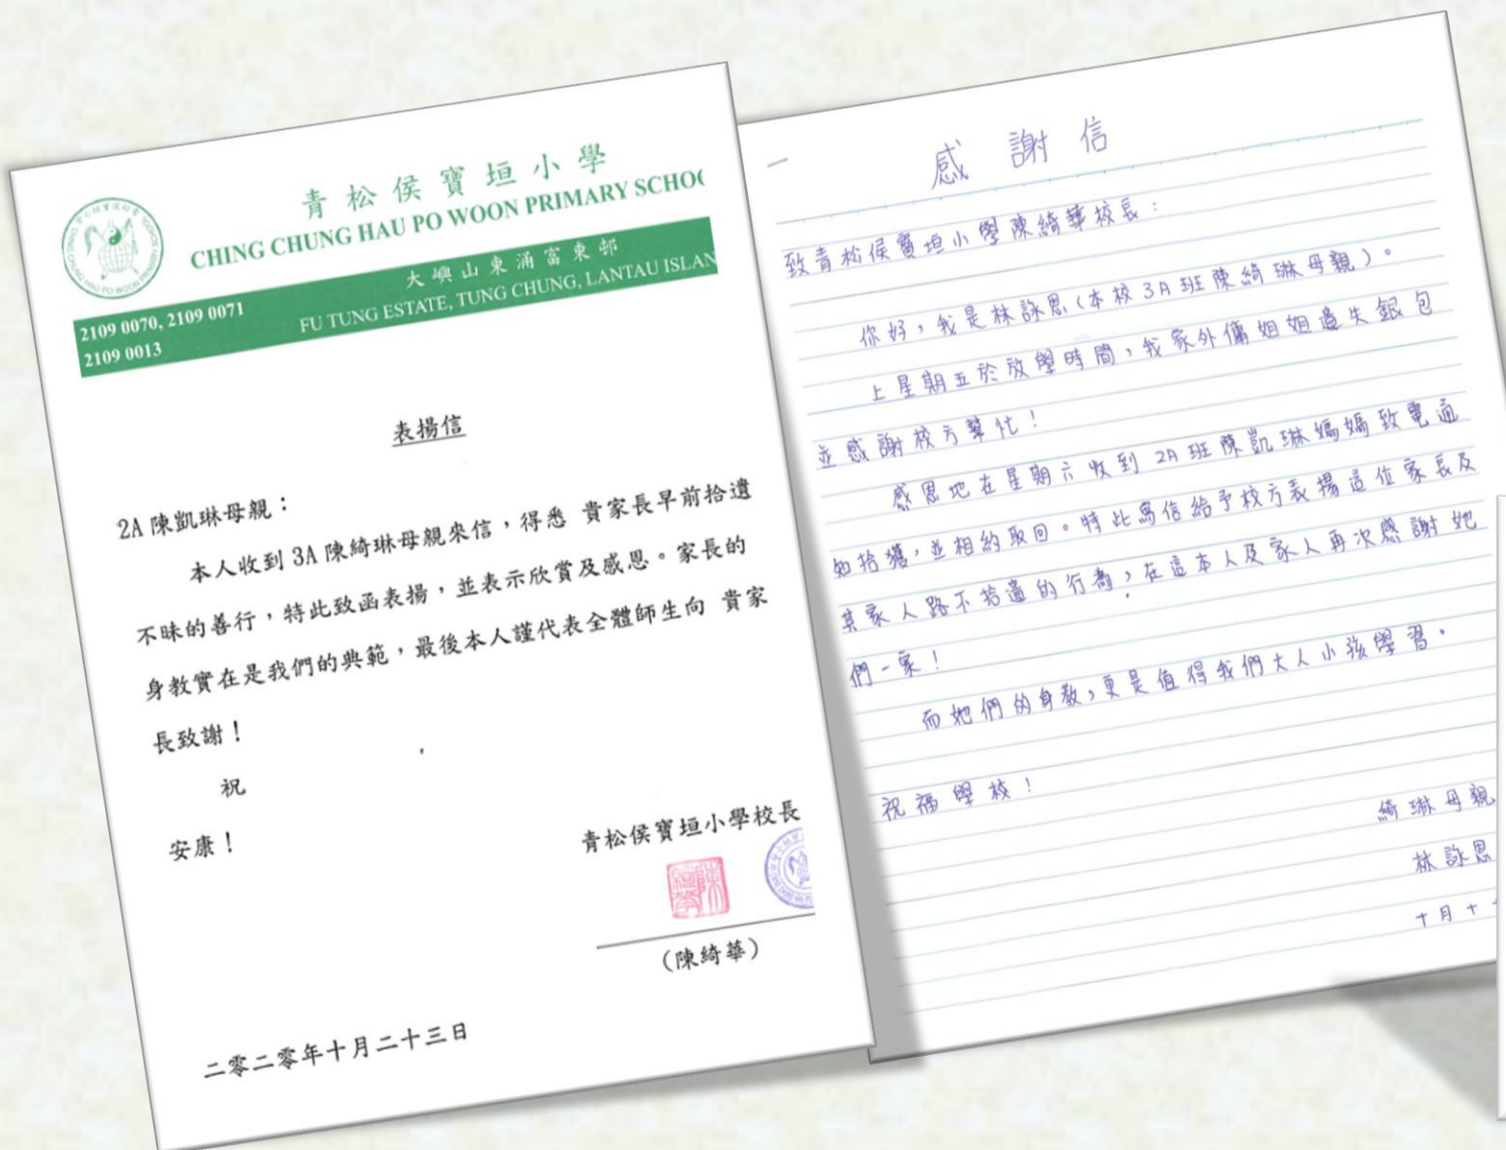 青松侯寶垣小學
CHING CHUNG HAU PO WOON PRIMARY SCHOO
大嶼山東涌富東邨
2109 0070, 2109 0071
FU TUNG ESTATE, TUNG CHUNG, LANTAU ISLAN
2109 0013
表揚信
2A 陳凱琳母親：
本人收到 3A 陳綺琳母親來信，得悉 貴家長早前拾遺
不昧的善行，特此致函表揚，並表示欣賞及感恩。家長的
身教實在是我們的典範，最後本人謹代表全體師生向 貴家
長致謝！
祝
安康！
青松侯寶垣小學校長
(陳綺華)
二零二零年十月二十三日
感謝信
致青松侯寶垣小學陳綺華校長：
你好，我是林詠恩(本校3A班陳綺琳母親)。
上星期五於放學時間，我家外傭姐姐遺失銀包
並感謝校方幫忙！
感恩地在星期六收到2A班陳凱琳媽媽致電通
知拾獲，並相約取回。特此寫信給予校方表揚這位家長及
其家人路不拾遺的行為，在這本人及家人再次感謝她
們一家！
而她們的身教，更是值得我們大人小孩學習。
祝福學校！
綺琳母親
林詠恩
十月十